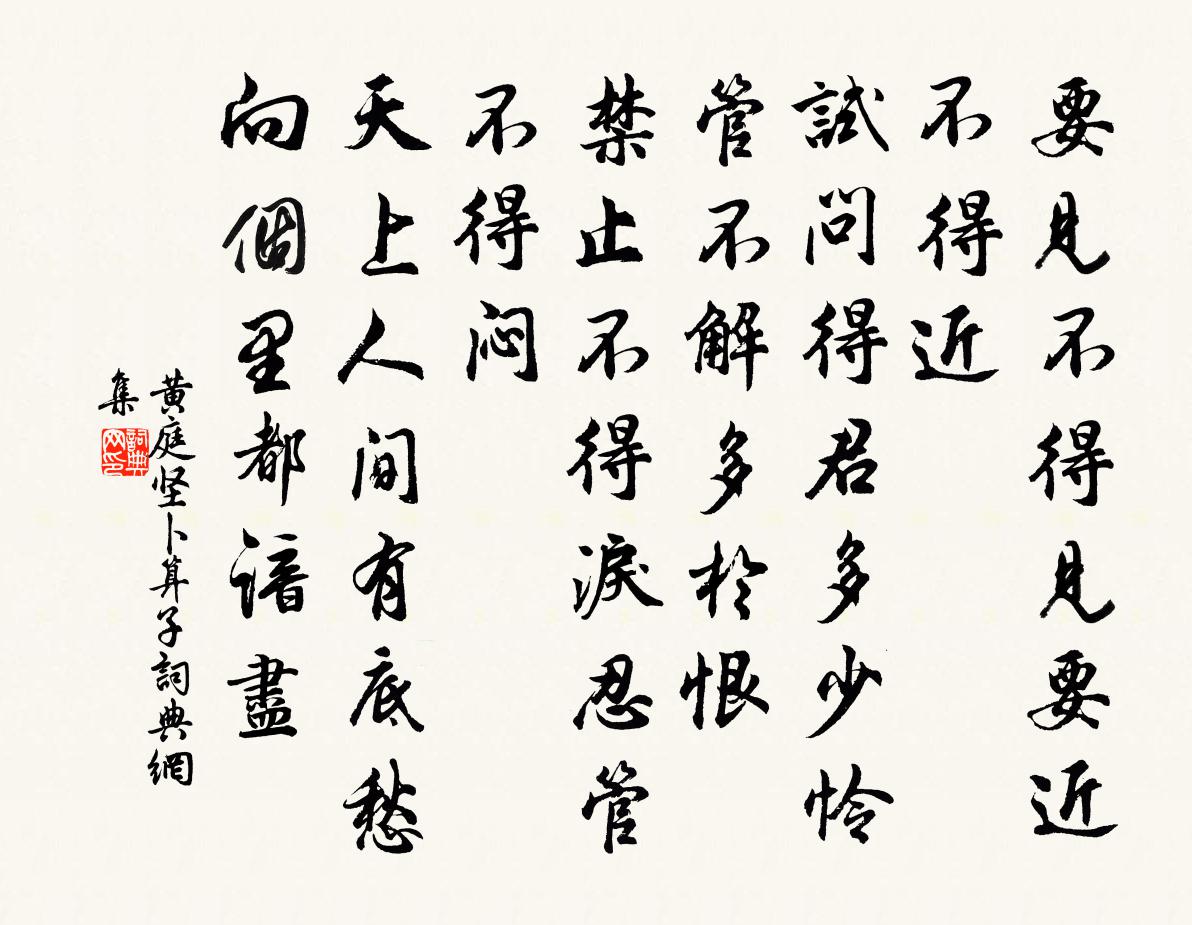 要見不得見要近
不得近
試問得君多少怜
管不解多於恨
禁止不得淚忍管
不得闷
天上人間有底愁
向個里都谙盡
黄庭坚卜算子詞典網
集
詞典网印